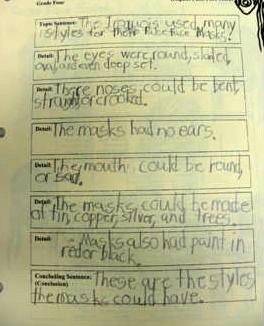 Grade Four
Topic Sentence: The Iroquois used many
styles for their false face masks.
Detail: The eyes were round, slated,
oval and even deep set.
Detail: There noses could be bent,
straight or crooked.
Detail: The masks had no ears.
Detail: The mouth could be round,
or sad.
Detail: The masks could be made
of tin, copper, silver, and trees.
Detail: Masks also had paint in
red or black.
Concluding Sentence: These are the styles
(Conclusion)
the masks could have.